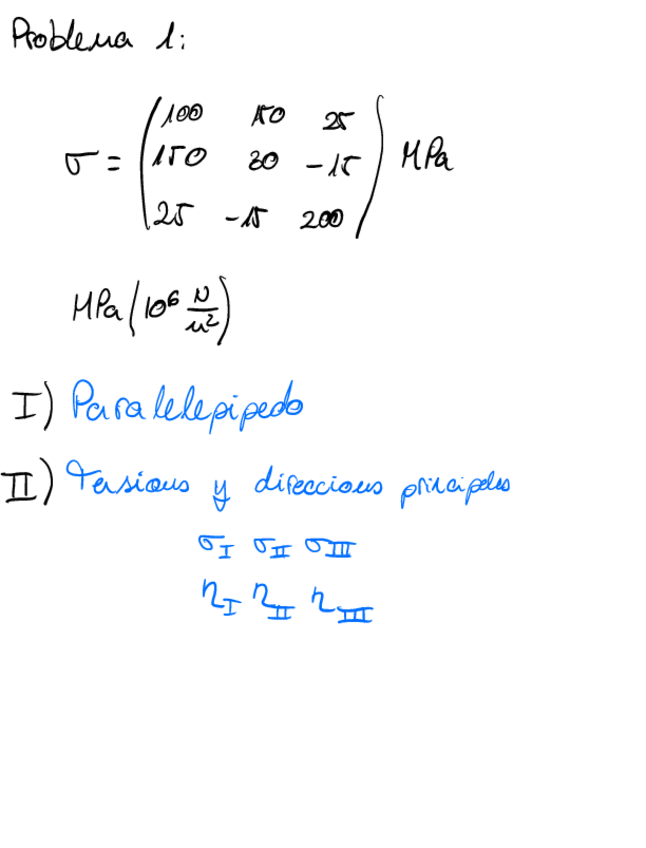 Problema 1:
100 150 25
σ = 150 30 -15 MPa
25 -15 200
MPa (10⁶ N/m²)
I) Paralelepipedo
II) Tensiones y direcciones principales
σI σII σIII
nI nII nIII